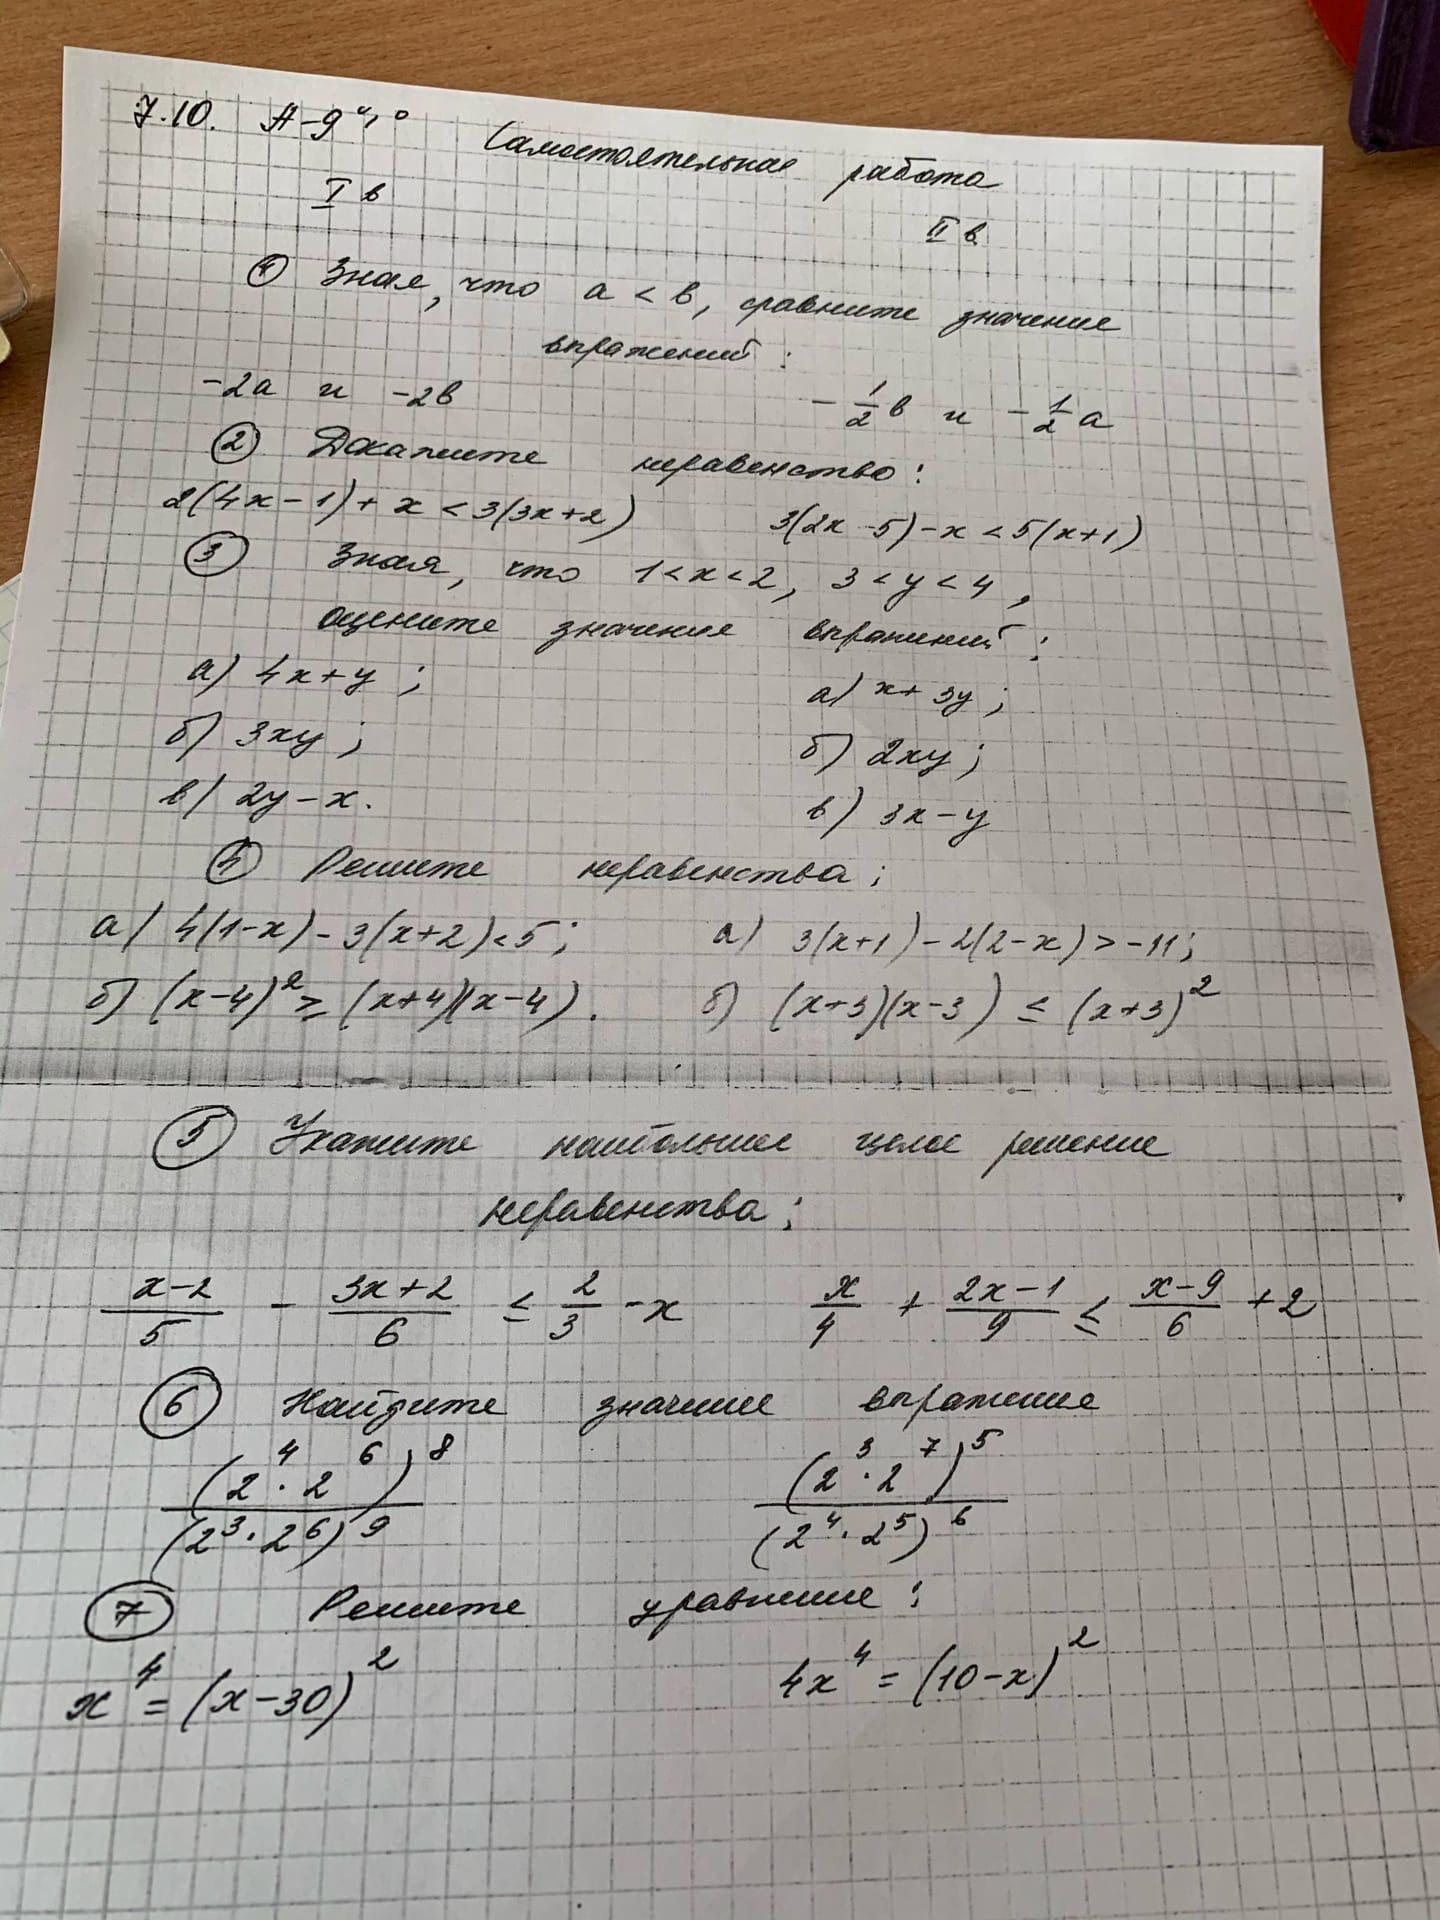 7.10. А-9 "  "
Самостоятельная работа
I в
II в.
① Зная, что a < в, сравните значение
выражений:
-2a и -2в
-1/2 в и -1/2 a
② Докажите неравенство:
2(4x-1)+x<3(3x+2)
3(2x-5)-x<5(x+1)
③ Зная, что 1<x<2, 3<y<4,
оцените значение выражений:
а) 4x+y;
а) x+3y;
б) 3xy;
б) 2xy;
в) 2y-x.
в) 3x-y
④ Решите неравенства:
а) 4(1-x)-3(x+2)<5;
а) 3(x+1)-2(2-x)>-11;
б) (x-4)²≥(x+4)(x-4).
б) (x+3)(x-3)≤(x+3)²
⑤ Укажите наибольшее целое решение
неравенства:
(x-2)/5 - (3x+2)/6 ≤ 2/3 - x
x/4 + (2x-1)/9 ≤ (x-9)/6 + 2
⑥ Найдите значение выражения
(2⁴·2⁶)⁸/(2³·2⁶)⁹
(2³·2⁷)⁵/(2⁴·2⁵)⁶
⑦ Решите уравнение:
x⁴=(x-30)²
4x⁴=(10-x)²